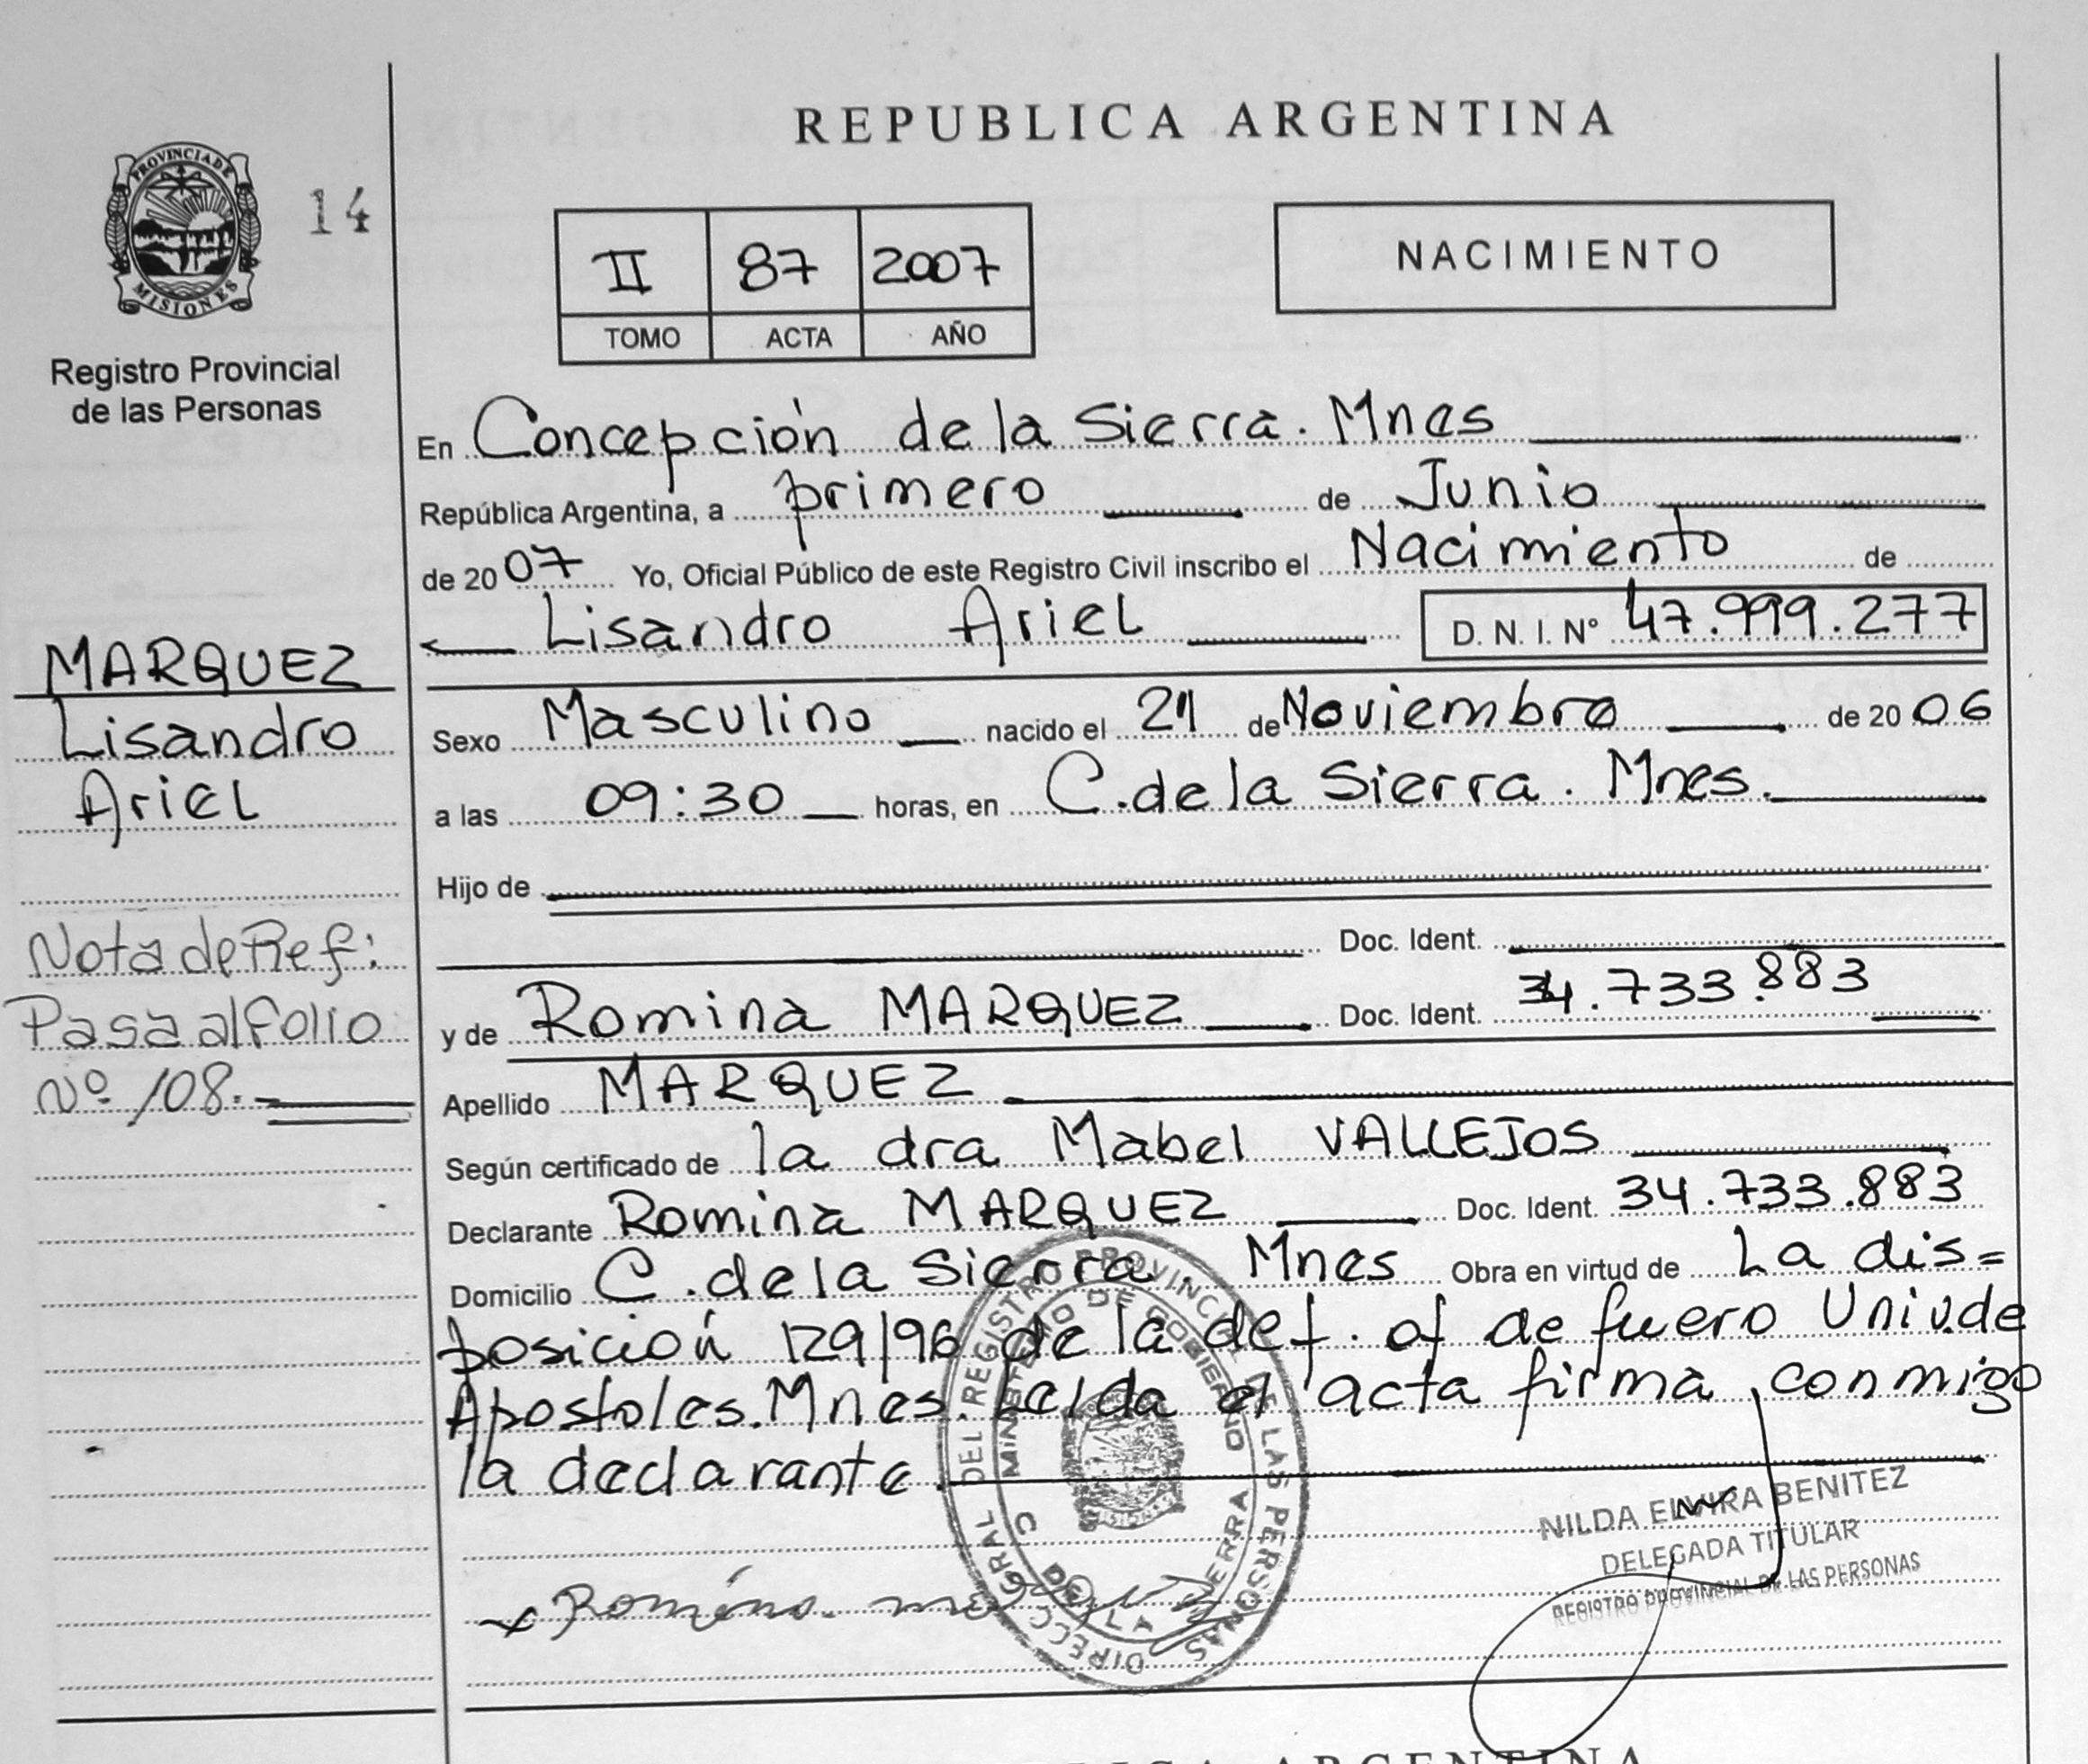 REPUBLICA ARGENTINA
PROVINCIA DE
MISIONES
14
Registro Provincial
de las Personas
II 87 2007
TOMO ACTA AÑO
NACIMIENTO
En Concepción de la Sierra. Mnes
República Argentina, a primero de Junio
de 2007 Yo, Oficial Público de este Registro Civil inscribo el Nacimiento de
Lisandro Ariel D. N. I. N° 47.999.277
MARQUEZ
Lisandro
Ariel
Sexo Masculino nacido el 21 de Noviembre de 2006
a las 09:30 horas, en C. de la Sierra. Mnes.
Hijo de
Doc. Ident.
Nota de Ref:
Pasa al folio
Nº 108.
y de Romina MARQUEZ Doc. Ident. 34.733.883
Apellido MARQUEZ
Según certificado de la dra Mabel VALLEJOS
Declarante Romina MARQUEZ Doc. Ident. 34.733.883
Domicilio C. de la Sierra. Mnes Obra en virtud de La dis=
posición 129/96 de la def. of de fuero Univ. de
Apostoles. Mnes. Leida el acta firma, conmigo
la declarante.
DIRECC GRAL DEL REGISTRO PROVINCIAL DE LAS PERSONAS
MINISTERIO DE GOBIERNO
C DE LA SIERRA
NILDA ELVIRA BENITEZ
DELEGADA TITULAR
REGISTRO PROVINCIAL DE LAS PERSONAS
Romina